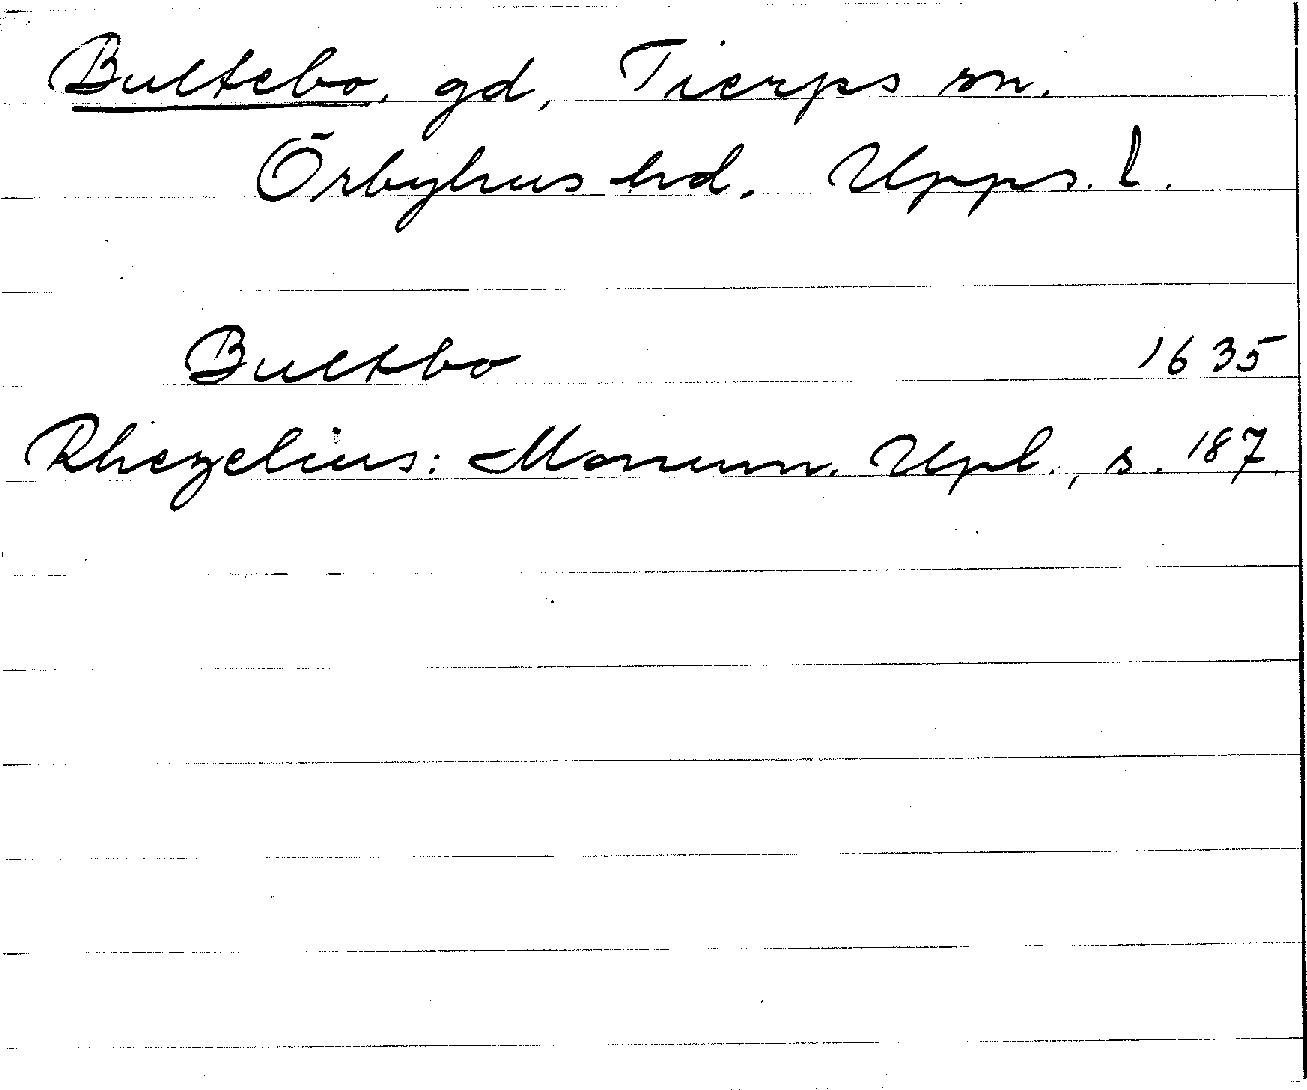 Bultebo, gd, Tierps sn.
Örbyhus hd. Upps. l.
Bultbo 1635
Rhezelius: Monum. Upl., s. 187.